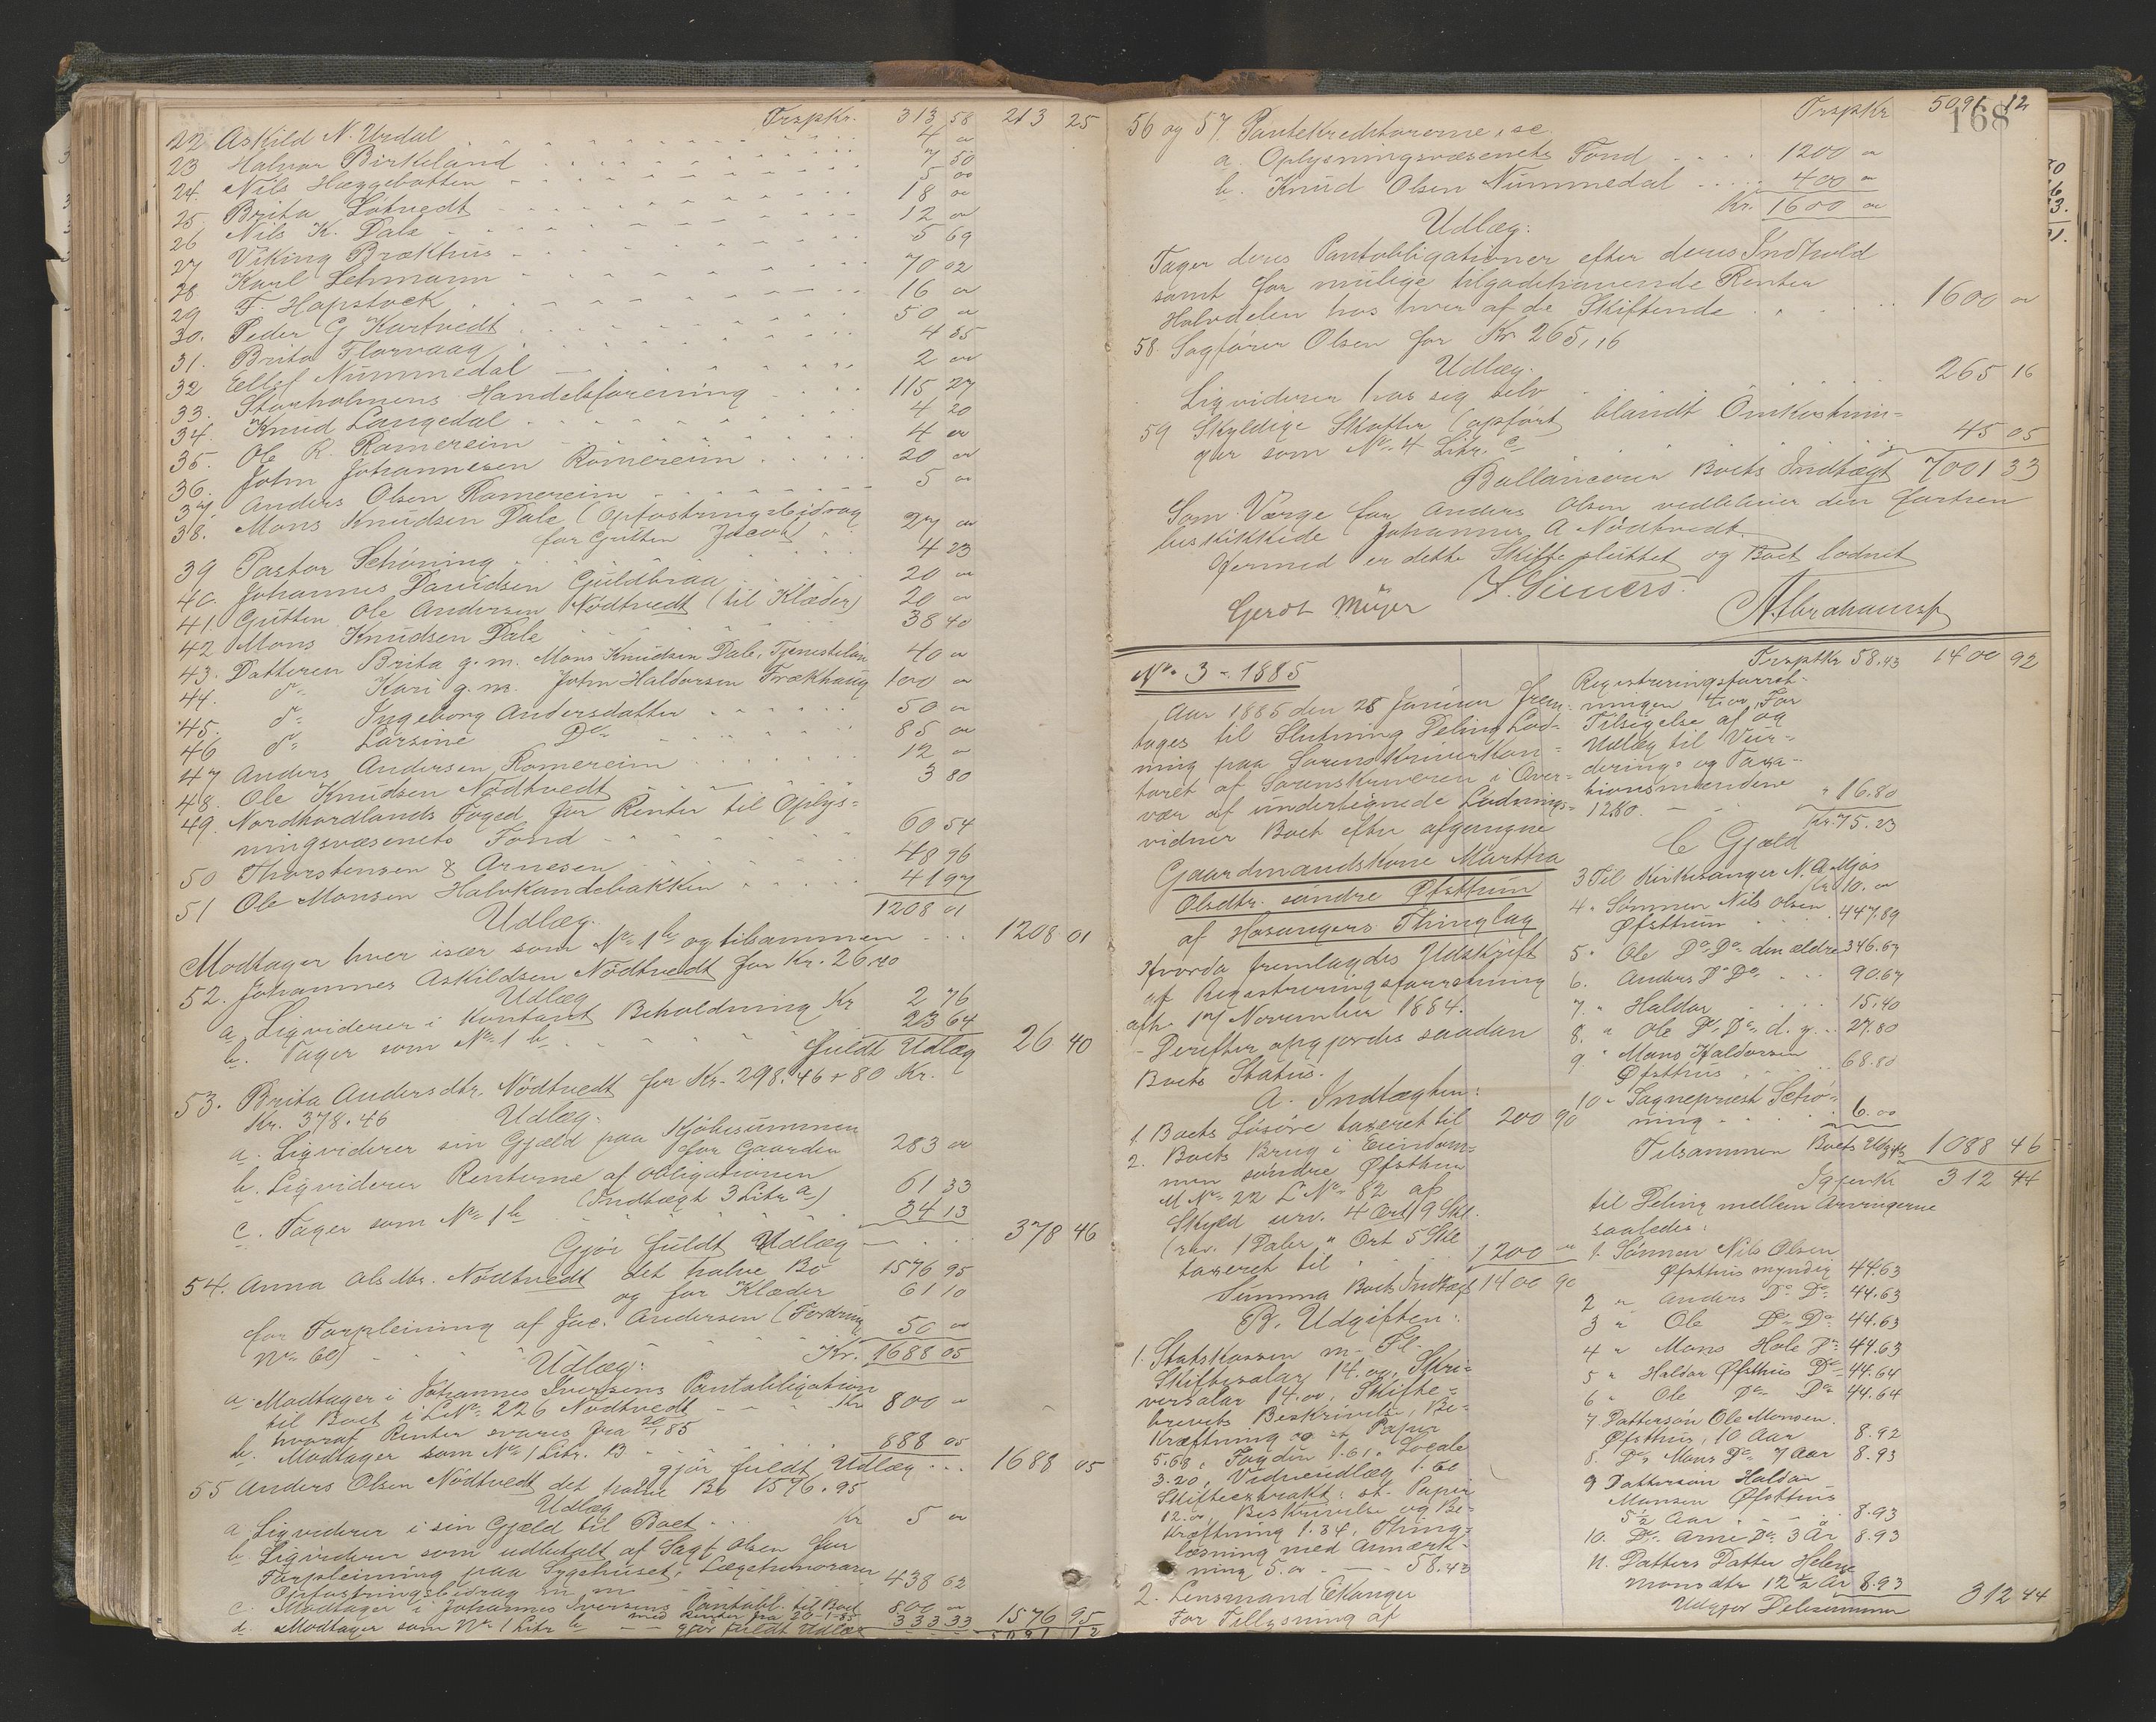 Trspkr. 313 58 213 25
22 Askild N. Urdal 4 "
23 Halvor Birkeland 7 50
24. Nils Hæggebotten 5 00
25. Brita Løtvedt 18 00
26 Nils K. Dale 12 "
27 Viking Brækhus 5 69
28 Karl Lehmann 70 02
29 F. Hopstock 16 "
30. Peder G Kurtvedt 50 "
31. Brita Florvaag 4 85
32 Ellef Nummedal 2 "
33. Storholmens Handelsforening 115 27
34. Knud Langedal 4 20
35. Ole R. Romereim 4 "
36. John Johannesen Romereim 20 "
37. Anders Olsen Romereim 5 "
38. Mons Knudsen Dale (Opfostringsbidrag
for Gutten Jacob) 27 "
39 Pastor Schøning 4 23
40. Johannes Davidsen Guldbraa 20 "
41 Gutten Ole Andersen Nödtvedt (til Klæder) 20 "
42 Mons Knudsen Dale 38 40
43. Datteren Brita g. m. Mons Knudsen Dale, Tjenesteløn 40 "
44. do Kari g. m. John Haldorsen Trækhaug 100 "
45. do Ingeborg Andersdatter 50 "
46 do Larsine Do 85 "
47 Anders Andersen Romereim 12 "
48. Ole Knudsen Nödtvedt 3 80
49. Nordhordlands Foged for Renter til Oplys-
ningsvæsenets Fond 60 54
50 Thorstensen & Arnesen 48 96
51 Ole Monsen Halvkandebakken 41 97
1208 01
Udlæg.
Modtager hver især som No 1 b og tilsammen 1208 01
52. Johannes Askildsen Nödtvedt for Kr. 26.40
Udlæg
a. Ligviderer i Kontant Beholdning Kr 2 76
b. Tager som No 1 b 23 64
fuldt Udlæg 26 40
53. Brita Andersdtr. Nödtvedt for Kr. 298.46 + 80 Kr.
Kr. 378.46 Udlæg.
a. Ligviderer sin Gjæld paa Kjøbesummen
for Gaarden 283 "
b. Ligviderer Renterne af obligationen
(Indtægt 3 Litr a) 61 33
c. Tager som No 1 b 34 13
Gjør fuldt Udlæg 378 46
54. Anna Olsdtr. Nödtvedt det halve Bo 1576 95
og for Klæder 61 10
for Forpleining af Jac. Andersen (Fordring
No 60) 50 "
Kr. 1688 05
Udlæg:
a. Modtager i Johannes Iversens Pantobligation
til Boet i LNo 226 Nødtvedt Kr 800 "
hvoraf Renter svares fra 20/1 85
b. Modtager som No 1 Litr. B 888 05
gjör fuldt Udlæg 1688 05
55 Anders Olsen Nödtvedt det halve Bo 1576.95
Udlæg
a Ligviderer i sin Gjæld til Boet Kr 5 "
b Ligviderer som udbetalt af Sagf Olsen for
Forpleining paa Sygehuset, Lægehonorarer
Opfostringsbidrag m m 438 62
c. Modtager i Johannes Iversens Pantobl. til Boet 800 "
med Renter fra 20-1-85
d. Modtager som No 1 Litr b 333.33 1576 95
gjör fuldt Udlæg 5091 12
Trspkr 5091 12
168
56 og 57. Pantekreditorerne, se
a. Oplysningsvæsenets Fond 1200 "
b. Knud Olsen Nummedal 400 "
Kr. 1600 "
Udlæg:
Tager deres Pantobligationer efter deres Indhold
samt for mulige tilgodehavende Renter
Halvdelen hos hver af de Skiftende 1600 "
58. Sagfører Olsen for Kr 265,16
Udlæg.
Ligviderer hos sig selv 265 16
59 Skyldige Skatter (opført blandt Omkostnin-
ger som No 4 Litr. c 45 05
Ballancerer Boets Indtægt 7001 33
Som Værge for Anders Olsen vedbliver den forhen
beskikkede Johannes A Nödtvedt.
Hermed er dette Skifte sluttet og Boet lodnet
Gerdt Meyer
A. Abrahamsen
No 3 - 1885
Aar 1885 den 28 Januar frem-
toges til Slutning Deling Lod-
ning paa Sorenskriverkon-
toret af Sorenskriveren i Over-
vær af undertegnede Lodnings-
vidner Boet efter afgangne
Gaardmandskone Marttha
Olsdtr. søndre Øfstthun
af Hosangers Thinglag
Hvorda fremlagdes Udskrift
af Registreringsforretning
afh. 17 November 1884.
- Derefter opgjordes saadan
Boets Status.
A. Indtægten:
1. Boets Løsøre taxeret til 200 90
2. Boets Brug i Eiendom-
men søndre Øfsthun
M No 22 L No 82 af
Skyld urv. 4 Ort 19 Skl.
(rev. 1 Daler " Ort 5 Skl
taxeret til 1200 "
Summa Boets Indtægt 1400 90
B. Udgiften:
1. Statskassen m. Fl.
Skiftesalær 14.00, Skri-
versalær 14.00, Skifte-
brevets Beskrivelse, Be-
kræftning og st. Papir
5.68, Fogden 1.61, Locale
3.20, Vidneudlæg 1.60
Skifteextrakt: st. Papir
12.00, Beskrivelse og Be-
kræftning 1.34, Thing-
læsning med Anmærk-
ning 5.00 58.43
2. Lensmand Ekanger
For Tillysning af
Trsptkr 58.43 1400 92
Registreringsforret-
ningen 4.00, For
Tilsigelse af og
Udlæg til Vur-
derings og Taxa-
tionsmændene
12.80. " 16.80
Kr. 75.23
C Gjæld
3 Til Kirkesanger N. A. Mjøs
Kr 10. "
4 " Sønnen Nils Olsen
Øfsthun 447.89
5 " Ole Do Do den ældre 346.67
6. Anders Do Do 90.67
7. " Haldor 15.40
8. " Ole Do Do d. y. 27.80
9 " Mons Haldorsen
Øfsthus 68.80
10 " Sognepræst Schø-
ning 6.00
Tilsammen Boets Udgift 1088 46
Igjen kr 312 44
til Deling mellem Arvingerne
saaledes:
1. Sønnen Nils Olsen
Øfsthus myndig 44.63
2 " Anders Do Do 44.63
3 " Ole Do Do 44.63
4 " Mons Hole Do 44.63
5 " Haldor Øfsthus Do 44.64
6 " Ole Do Do 44.64
7. Dattersøn Ole Monsen
Øfsthus, 10 Aar 8.92
8. Do Mons Do 7 Aar 8.93
9 Dattersøn Haldor
Monsen Øfsthus
5½ Aar 8.93
10. Do Arne Do 3 År 8.93
11. Datters Datter Helene
Monsdtr 12½ År 8.93
Udgjør Delesummen 312 44